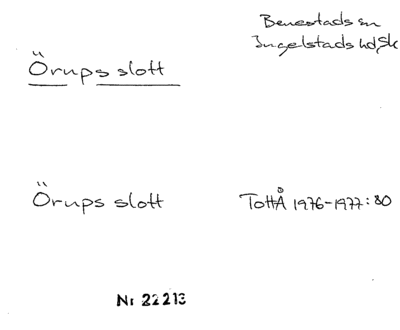 Benestads sn
Ingelstads hd, Sk
Örups slott
Örups slott
TottÅ 1976-1977:80
Nr 22213